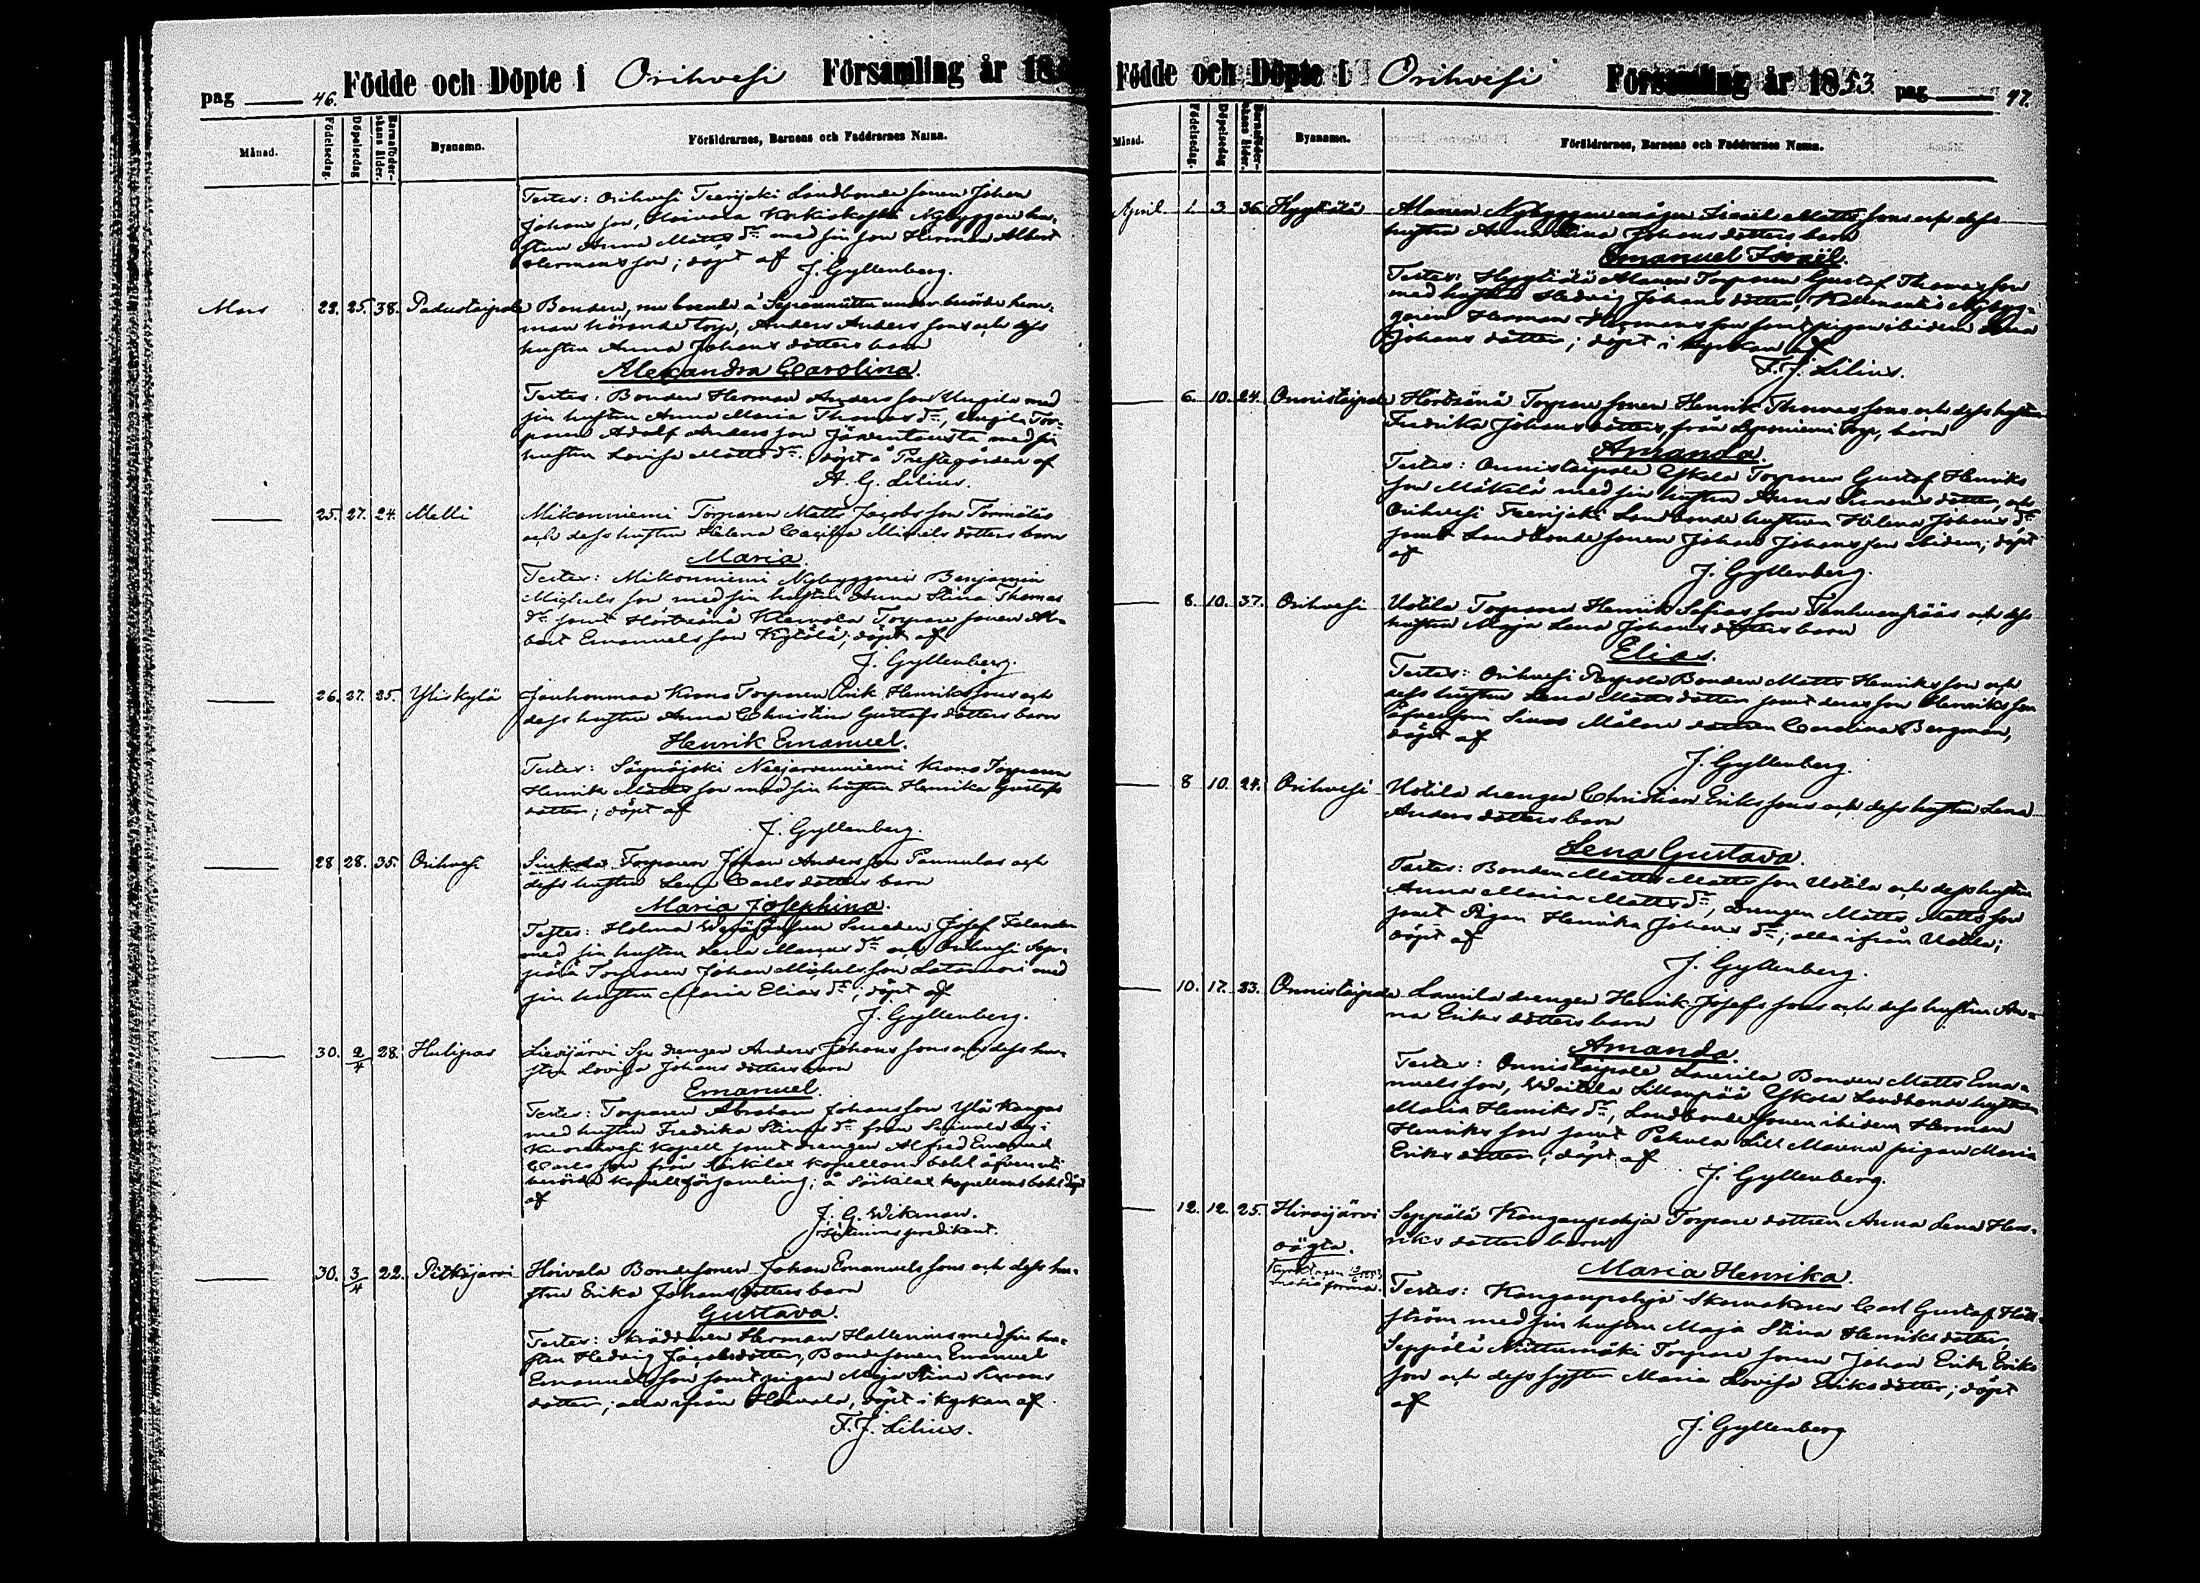 pag 46. Födde och Döpte i Orihvesi Församling år 18
Månad. Födelsedag. Döpelsedag Barnaföderskans ålder. Byanamn. Föräldrarnes, Barnens och Faddrarnes Namn.
Testes: Orihvesi Teerijoki Landbonde sonen Johan
Johans son, Hoivala Nybyggare hu-
strun Anna Matts dr med sin son Herman Albert
Hermans son; döpt af
J. Gyllenberg.
Mars 22. 25. 38. Padustaipale Bonden, nu boende å under berörde hem-
man hörande torp, Anders Anders sons och dess
hustru Anna Johans dotters barn
Alexandra Carolina.
Testes: Bonden Herman Anders son Uusgila med
sin hustru Anna Maria Thomas dr, Tor-
paren Adolf Anders son Järventausta med sin
hustru Lovisa Matts dr. döpt å Prestegården af
A. G. Lilius.
25. 27. 24. Malli Mikonniemi Torparen Matts Jacobs son Tormälas
och dess hustru Helena Cecilia Michels dotters barn
Maria.
Testes: Mikonniemi Nybyggaren Benjamin
Michels son med sin hustru Anna Stina Thomas
dr samt Hörtsänä Klemola Torpare sonen Al-
bert Emanuels son Kytölä; döpt af
J. Gyllenberg.
26. 27. 25. Yliskylä Jouhonmaa Krono Torparen Erik Henriks sons och
dess hustru Anna Christina Gustafs dotters barn
Henrik Emanuel.
Testes: Säynäjoki Neejarvenniemi Krono Torparen
Henrik Matts son med sin hustru Henrika Gustafs
dotter; döpt af
J. Gyllenberg.
28. 28. 35. Orihvesi Sinkola Torparen Johan Anders son Pannulas och
dess hustru Lena Carls dotters barn
Maria Josephina.
Testes: Holma Smeden Josef Felander
med sin hustru Lena dr och Orihvesi Sep-
pälä Torparen Johan Michels son Latomeri med
sin hustru Maria Elias dr; döpt af
J. Gyllenberg.
30. 2/4 28. Hulipas Liesijärvi drengen Anders Johans sons och dess hu-
stru Lovisa Johans dotters barn
Emanuel.
Testes: Torparen Abraham Johans son Ylä Kangas
med hustru Fredrika Stinas dr från by i
Kuorehvesi Kapell samt drengen Alfred Emanuel
Carls son från Särkilax kapellans bohl äfven uti
berörde kapellförsamling; å Särkilax kapellans bohl döpt
af
J. G. Wikman.
predikant.
30. 3/4 22. Pitkäjärvi Hoivala Bondesonen Johan Emanuels sons och dess hu-
stru Erika Johans dotters barn
Gustava.
Testes: Skräddaren Herman Hallenius med sin hu-
stru Hedvig Jacobsdotter, Bondesonen Emanuel
Emanuels son samt pigan Maja Stina
dotter; alla ifrån Hoivala, döpt i kyrkan af
F. J. Lilius.
Födde och Döpte i Orihvesi Församling år 1853. pag 47.
Månad. Födelsedag. Döpelsedag Barnaföderskans ålder. Byanamn. Föräldrarnes, Barnens och Faddrarnes Namn.
April 1. 3. 36. Hyytiälä Alanen Nybyggaremågen Israel Matts sons och dess
hustru Anna Stina Johans dotters barn
Emanuel Israël.
Testes: Hyytiälä Alanen Torparen Gustaf Thomas son
med hustru Hedvig Johans dotter, Nybyg-
garen Herman Hermans son samt pigan ibidem
Johans dotter; döpt i kyrkan af
F. J. Lilius.
6. 10. 24. Onnistaipale Hörtsänä Torpare sonen Henrik Thomas sons och dess hustru
Fredrika Johans dotters, från torp, barn
Amanda.
Testes: Onnistaipale Yskola Torparen Gustaf Henriks
son Mäkelä med sin hustru Anna Simons dotter, och
Orihvesi Teerijoki Landbonde hustrun Helena Johans dr
samt Landbonde sonen Johan Johans son ibidem; döpt
af
J. Gyllenberg.
8. 10. 37. Orihvesi Uotila Torparen Henrik Sefias son Tanhuanpääs och dess
hustru Maja Lena Johans dotters barn
Elias.
Testes: Orihvesi Bonden Matts Henriks son och
dess hustru Lena Matts dotter samt deras son Henriks son
äfvensom Målare dottren Carolina Bergman,
döpt af
J. Gyllenberg.
8. 10. 24. Orihvesi Uotila drengen Christian Eriks sons och dess hustru Lena
Anders dotters barn
Lena Gustava.
Testes: Bonden Matts Matts son Uotila och dess hustru
Anna Maria Matts dr, Drengen Matts Matts son
samt Pigan Henrika Johans dr; alla ifrån Uotila;
döpt af
J. Gyllenberg.
10. 17. 23. Onnistaipale Laurila drengen Henrik Josefs sons och dess hustru An-
na Eriks dotters barn
Amanda.
Testes: Onnistaipale Laurila Bonden Matts Ema-
nuels son, Yskola Landbonde hustrun
Maria Henriks dr, Landbonde sonen ibidem Herman
Henriks son samt Pekula Lill Mauno pigan Maria
Eriks dotter; döpt af
J. Gyllenberg.
12. 12. 25. Hirsijärvi Seppälä Kangaspohja Torpare dottren Anna Lena Hen-
oägta. riks dotters barn
Maria Henrika.
Testes: Kangaspohja Skomakaren Carl Gustaf Häll-
ström med sin hustru Maja Stina Henriks dotter,
Seppälä Niittumäki Torpare sonen Johan Erik Eriks
son och dess syster Maria Lovisa Eriksdotter; döpt
af
J. Gyllenberg